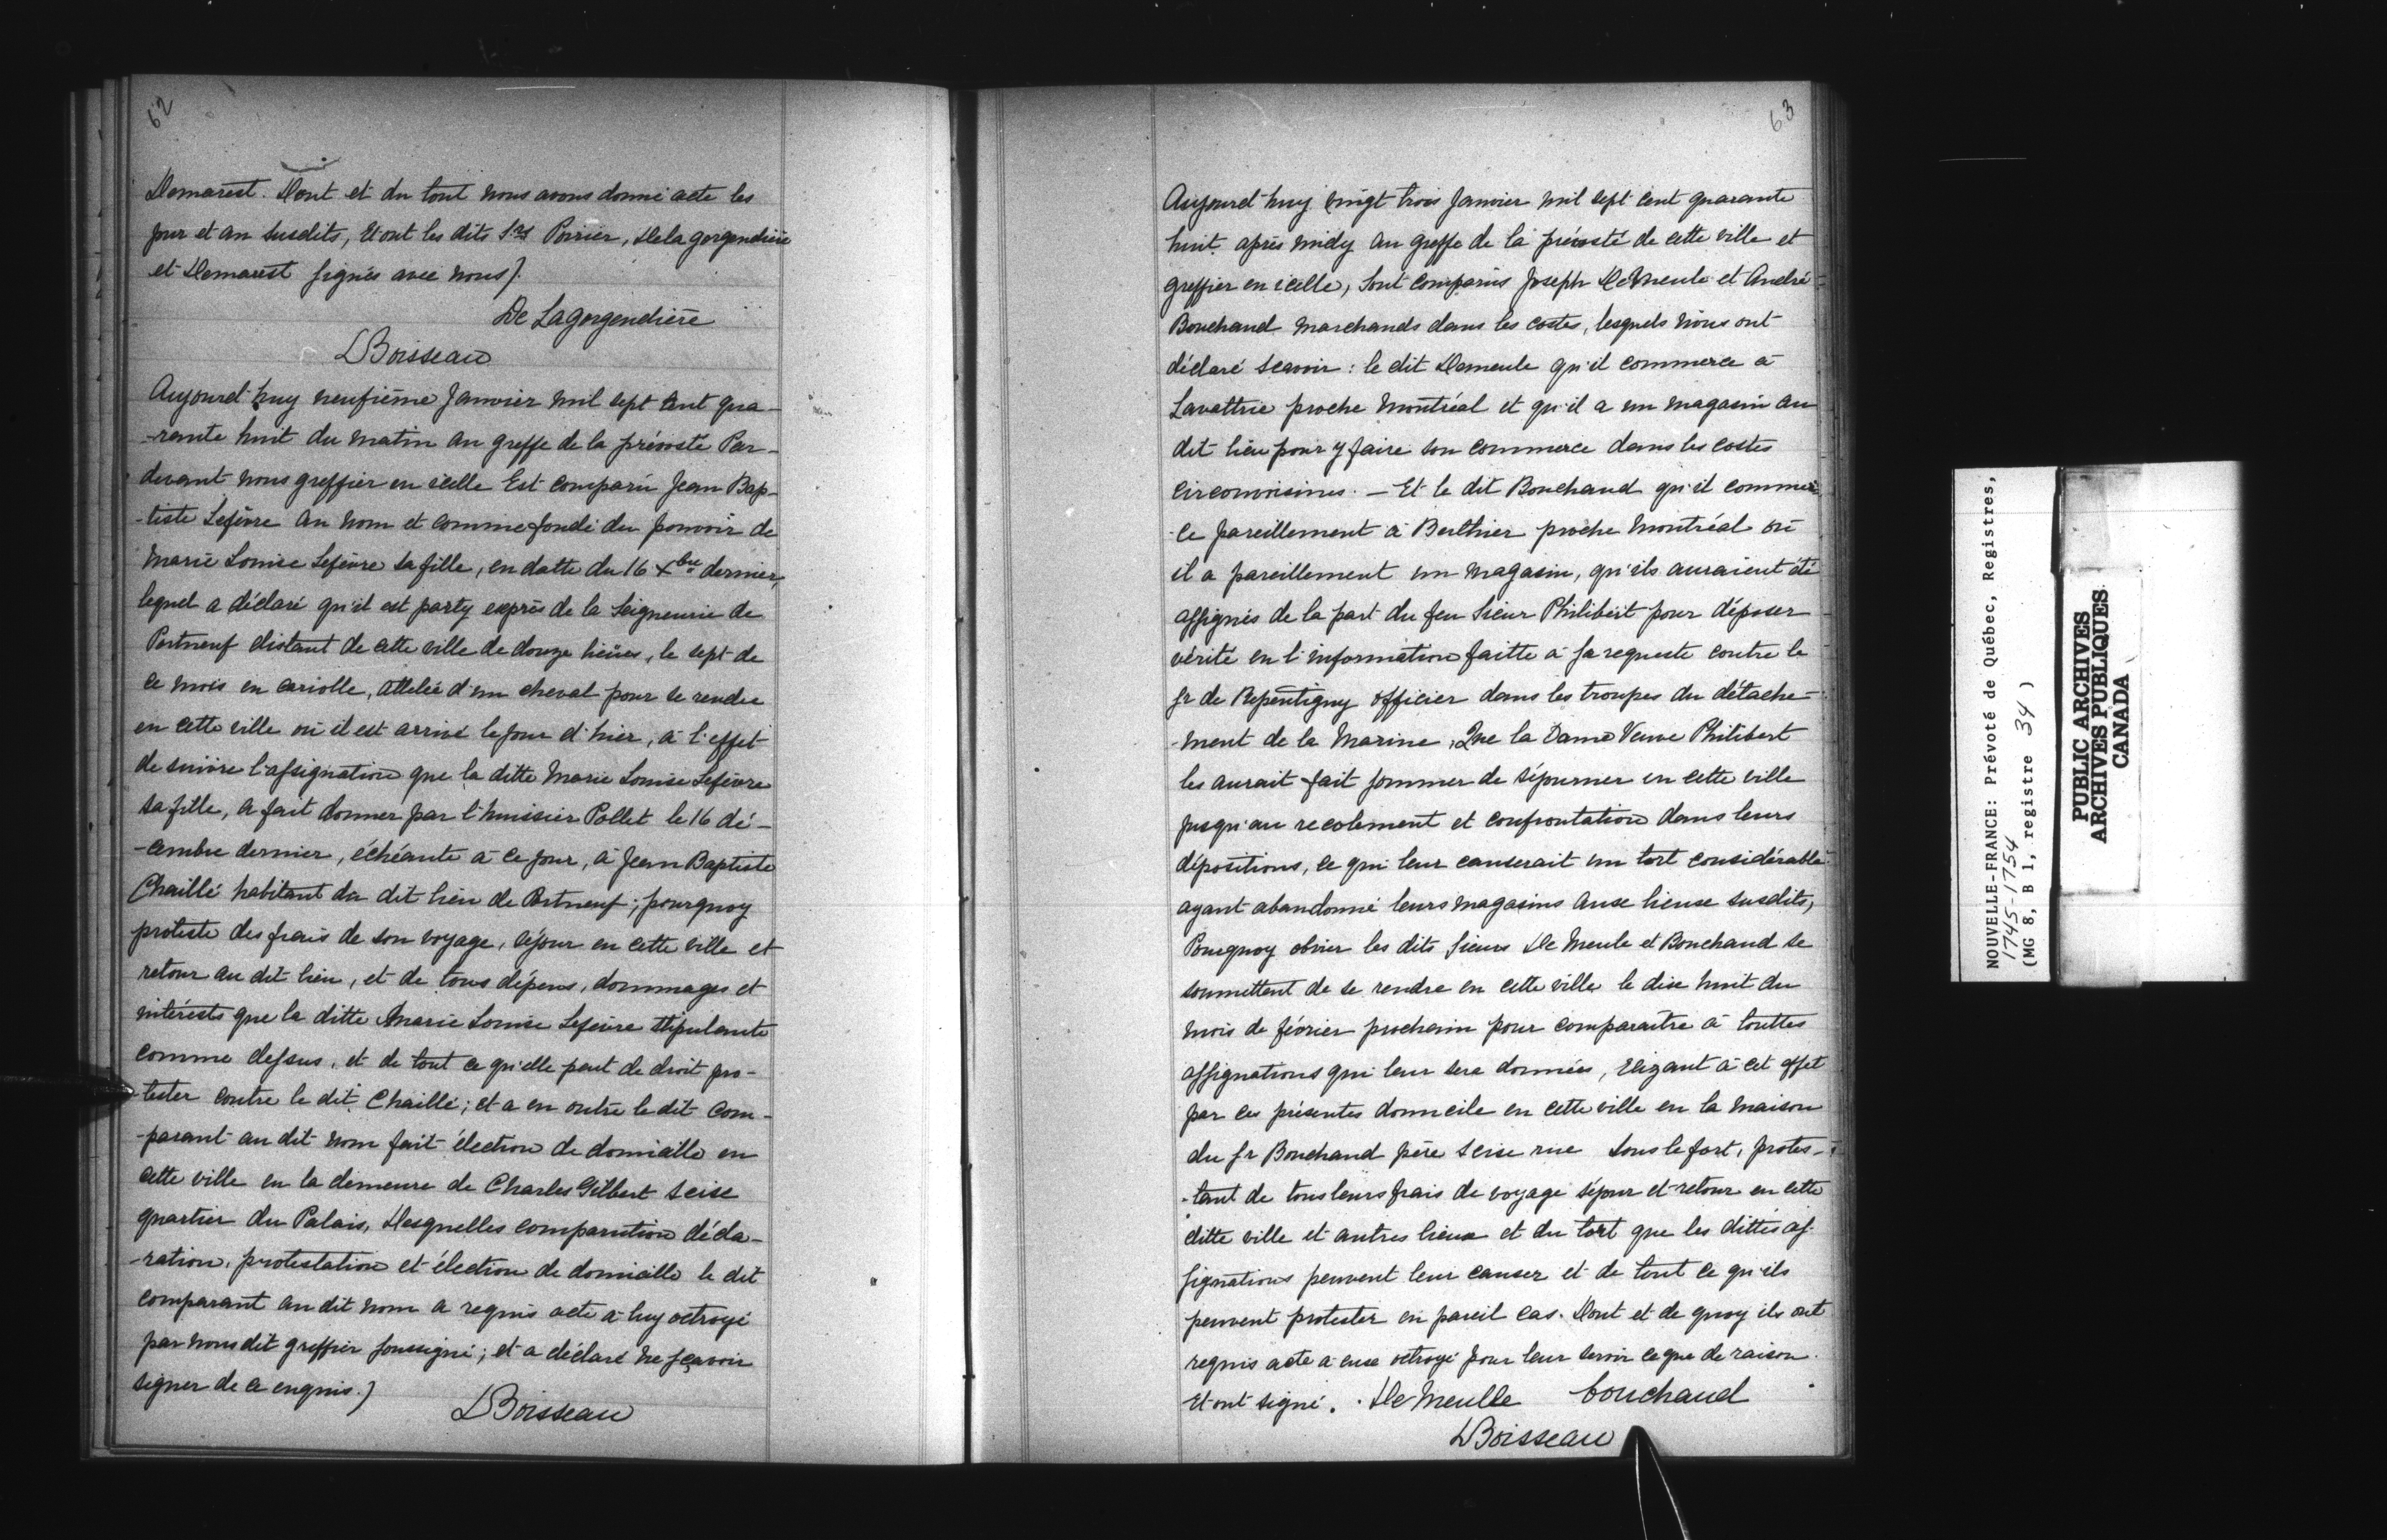 62
Demarest. Dont et du tout nous avons donné acte les
jour et an susdits, Et ont les dits Srs Poirier, Delagorgendière
et Demarest signés avec nous).
De Lagorgendière
LBoisseau
Aujourd'huy neufième Janvier mil sept cent qua-
-rante huit du matin au greffe de la prévosté Par-
devant nous greffier en icelle Est comparu Jean Bap-
-tiste Lefèvre au nom et comme fondé du pouvoir de
Marie Louise Lefèvre sa fille, en datte du 16 Xbre dernier,
lequel a déclaré qu'il est party exprès de la Seigneurie de
Portneuf distant de cette ville de douze lieües, le sept de
ce mois en cariolle, attelée d'un cheval pour se rendre
en cette ville où il est arrivé le jour d'hier, à l'effet
de suivre l'assignation que la ditte Marie Louise Lefèvre
sa fille, a fait donner par l'huissier Pollet le 16 dé-
-cembre dernier, échéante à ce jour, à Jean Baptiste
Chaillé habitant du dit lieu de Portneuf; pourquoy
proteste des frais de son voyage, séjour en cette ville et
retour au dit lieu, et de tous dépens, dommages et
intérests que la ditte Marie Louise Lefèvre stipulante
comme dessus, et de tout ce qu'elle peut de droit pro-
-tester contre le dit Chaillé; et a en outre le dit com-
-parant au dit nom fait élection de domicille en
cette ville en la demeure de Charles Gilbert scise
quartier du Palais, Desquelles comparution décla-
-ration, protestation et élection de domicille le dit
comparant au dit nom a requis acte à luy octroyé
par nous dit greffier soussigné; et a déclaré ne sçavoir
signer de ce enquis.)
LBoisseau
63
Aujourd'huy vingt trois Janvier mil sept cent quarante
huit après midy au greffe de la prévosté de cette ville et
greffier en icelle, Sont comparus Joseph De Meule et André
Bouchaud marchands dans les costes, lesquels nous ont
déclaré scavoir: le dit Demeule qu'il commerce à
Lavattrie proche Montréal et qu'il a un magasin au
dit lieu pour y faire son commerce dans les costes
circonvoisines. — Et le dit Bouchaud qu'il commer-
-ce pareillement à Berthier proche Montréal où
il a pareillement un magasin, qu'ils auraient été
assignés de la part du feu Sieur Philibert pour déposer
vérité en l'information faitte à sa requeste contre le
Sr de Repentigny officier dans les troupes du détache-
-ment de la Marine, Que la Dame Veuve Philibert
les aurait fait sommer de séjourner en cette ville
jusqu'au recolement et confrontation dans leurs
dépositions, ce qui leur causerait un tort considérable
ayant abandonné leurs magasins aux lieux susdits,
Pourquoy obvier les dits Sieurs De Meule et Bouchaud se
soumettent de se rendre en cette ville le dix huit du
mois de février prochain pour comparaître à touttes
assignations qui leur sera données, Elizant à cet effet
par ces présentes domicile en cette ville en la maison
du Sr Bouchaud père scise rue Sous le fort, protes-
-tant de tous leurs frais de voyage séjour et retour en cette
ditte ville et autres lieux et du tort que les dittes as-
signations peuvent leur causer et de tout ce qu'ils
peuvent protester en pareil cas. Dont et de quoy ils ont
requis acte à eux octroyé pour leur servir ce que de raison.
Et ont signé. De Meulle bouchaud
LBoisseau
NOUVELLE-FRANCE: Prévoté de Québec, Registres,
1745-1754
(MG 8, B 1, registre 34 )
PUBLIC ARCHIVES
ARCHIVES PUBLIQUES
CANADA